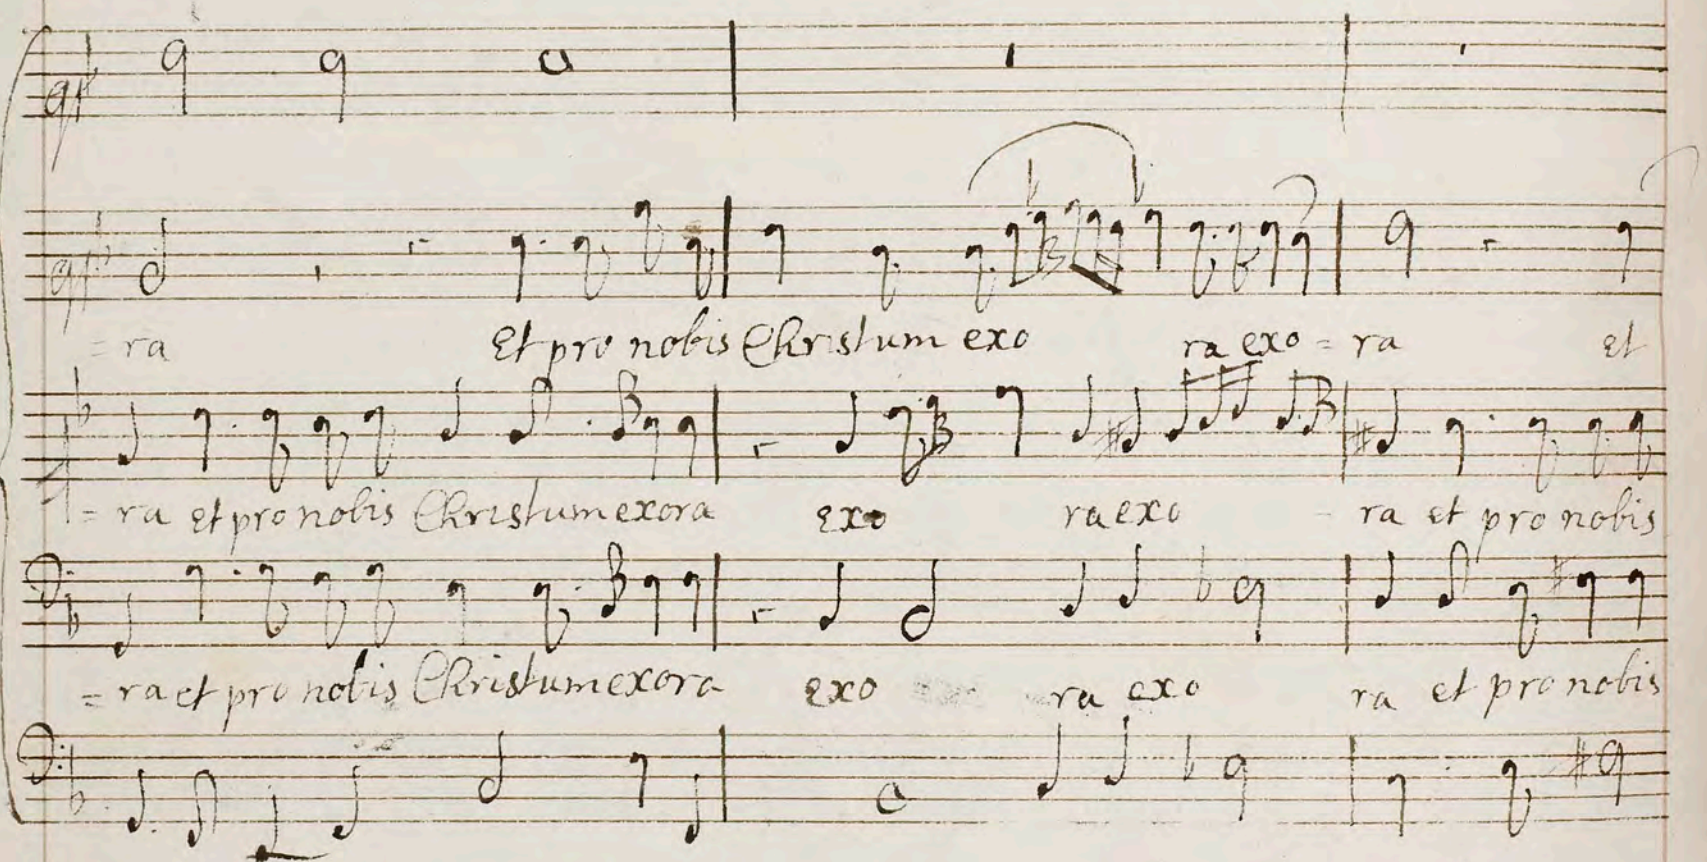 = ra Et pro nobis Christum exo ra exo = ra et
= ra et pro nobis Christum exora exo ra exo ra et pro nobis
= ra et pro nobis Christum exora exo ra exo ra et pro nobis